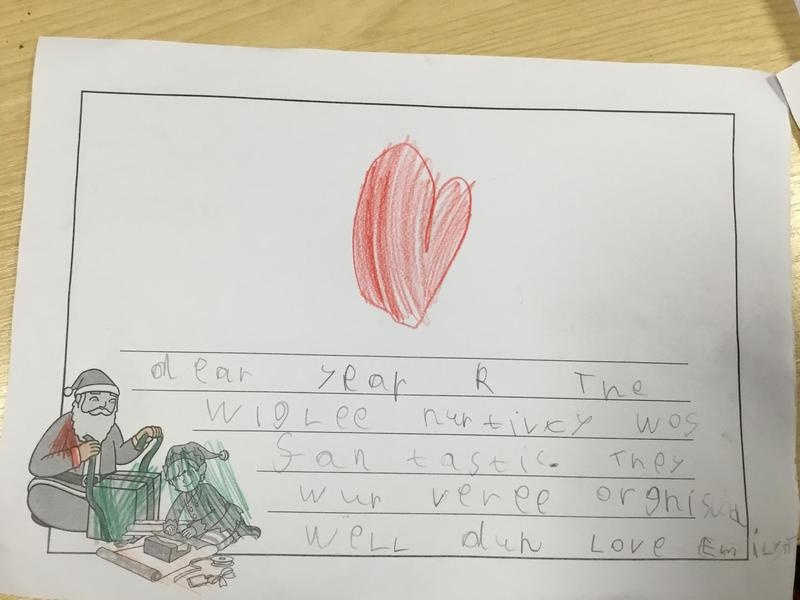 dear year R The
wigLee nurtivity wos
fantastic. They
wur veree orgnisud
weLL dun Love EmilyH